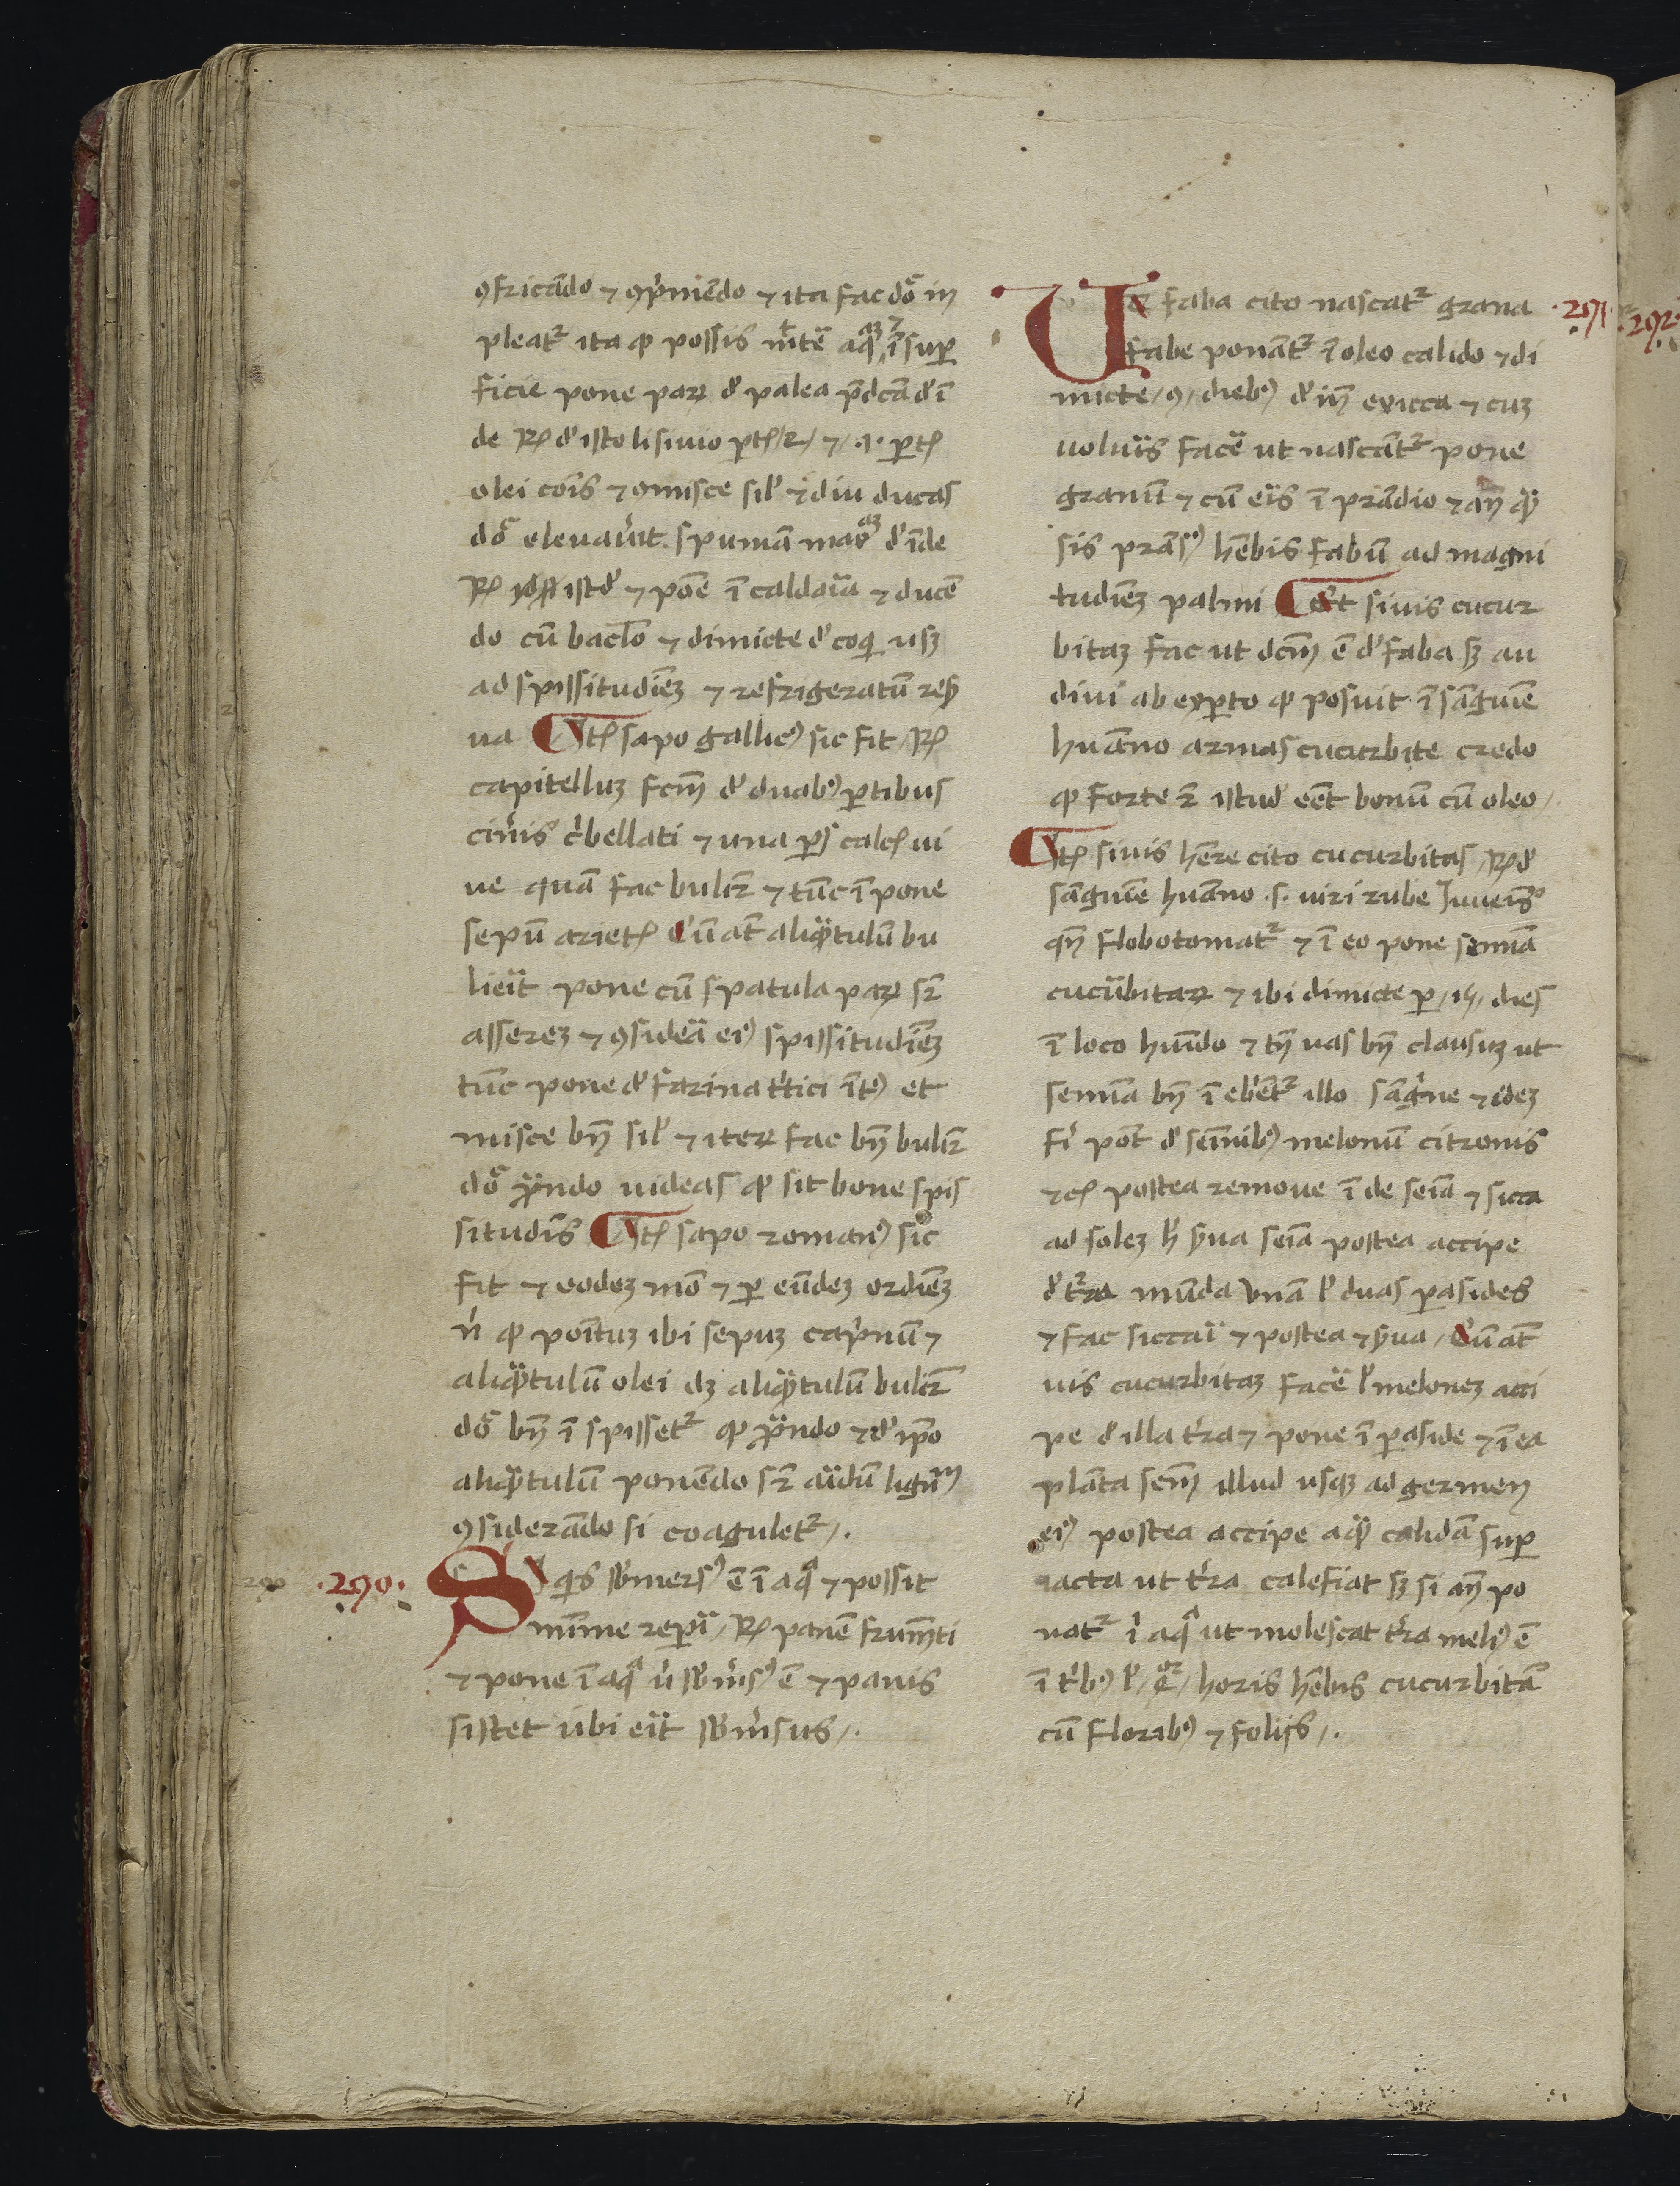 ꝯfricādo ⁊ ꝯp̄mēdo ⁊ ita fac dō in
pleat᷑ ita ꝙ possis mi̅te̅ aq̅ ī sup
ficie pone paꝝ d̓ palea p̄dc̄a d̓ ī
de ℞ d̓ isto lisiuio p̱tes /2/ ⁊ /.1. p̱te
olei cōis ⁊ ꝯmisce sil̓ ⁊ diu ducas
dō eleuau̓it spumā mag d̓ īde
℞ istd̓ ⁊ pōe ī caldaīa ⁊ ducē
do cū bac̄lo ⁊ dimicte d̓coqi usꝫ
ad spissitudīeꝫ ⁊ refrigeratū res̓
ua ¶ Itē sapo gallic᷒ sic fit / ℞
capitelluꝫ fc̄m d̓ duabꝫ p̱tibus
cin̓is c̓bellati ⁊ una p̱s calcꝭ ui
ue quā fac bulir̄ ⁊ tūc ī pone
sepū arietꝭ Cū at̄ aliqͣtulū bu
lie̓it pone cū spatula paꝝ sr̄
assereꝫ ⁊ ꝯsidea̓ ei᷒ spissitudīeꝫ
tūc pone d̓ farina t̓tici īt᷒ et
misce bn̄ sil̓ ⁊ iteꝝ fac bn̄ bulir̄
dō ꝓbando uideas ꝙ sit bone spis
situdīs ¶ Itē sapo roman᷒ sic
fit ⁊ eodeꝫ mō ⁊ ꝑ eūdeꝫ ordīeꝫ
n̓ ꝙ poītuꝫ ibi sepuꝫ cap̓nū ⁊
aliqͣtulū olei dꝫ aliqͣtulū bulir̄
dō bn̄ ī spisset᷑ ꝙ ꝓbando ⁊ d̓ ip̄o
aliqͣtulū ponēdo sr̄ aīdū lignū
ꝯsiderādo si coagulet᷑ /.
·290· Si qis sb̓mers᷒ ē ī aqͣ ⁊ possit
mīme rep̱i̓ / ℞ panē frum̄ti
⁊ pone ī aqͣ u̓ sb̓m̓s᷒ ē ⁊ panis
sistet ubi ei̓t sb̓m̓sus /.
Ut faba cito nascat᷑ grana ·291·
fabe ponāt᷑ ī oleo calido ⁊ di
micte /9/ diebꝫ d̓ in̄ exicca ⁊ cuꝫ
uolui̓s face̓ ut nascāt᷑ pone
granū ⁊ cū ei̓s ī prādio ⁊ an̄ ꝙ
sis prās᷒ hēbis fabū ad magni
tudīeꝫ palmi ¶ Et siuis cucur
bitaꝫ fac ut dc̄m ē d̓ faba sꝫ au
diui ab exp̱to ꝙ posuit ī sāguīe
huāno armas cucurbite credo
ꝙ forte ⁊ istud eēt bonū cū oleo /.
¶ Itē siuis hēre cito cucurbitas / ℞ d̓
sāguīe huāno .s. uiri rube Juuēis
qn̄ flobotomat᷑ ⁊ ī eo pone semīa
cucūbitaꝝ ⁊ ibi dimicte p̱ /15/ dies
ī loco humīdo ⁊ tn̄ uas bn̄ clausuꝫ ut
semīa bn̄ ī ebēt᷑ illo sāg̓ne ⁊ ideꝫ
fi̓ pōt d̓ semīibꝫ melonū citronis
⁊cꝭ postea remoue ī de seīa ⁊ sicca
ad soleꝫ h̓ s̓ua seīa postea accipe
d̓ t̓ra mūda unā l̓ duas p̱asides
⁊ fac siccai̓ ⁊ postea ⁊ s̓ua / Cū at̄
uis cucurbitaꝫ face̓ l̓ meloneꝫ acci
pe d̓ illa t̓ra ⁊ pone ī p̱aside ⁊ ī ea
plāta sem̄ illud usqꝫ ad germen
ei᷒ postea accipe aqͣ calidā sup̱
iacta ut t̓ra calefiat sꝫ si an̄ po
nat᷑ ī aqͣ ut molescat t̓ra meli᷒ ē
ī t̓bꝫ l̓ /4/ horis hēbis cucurbitā
cū floribꝫ ⁊ foliis /.
·292·